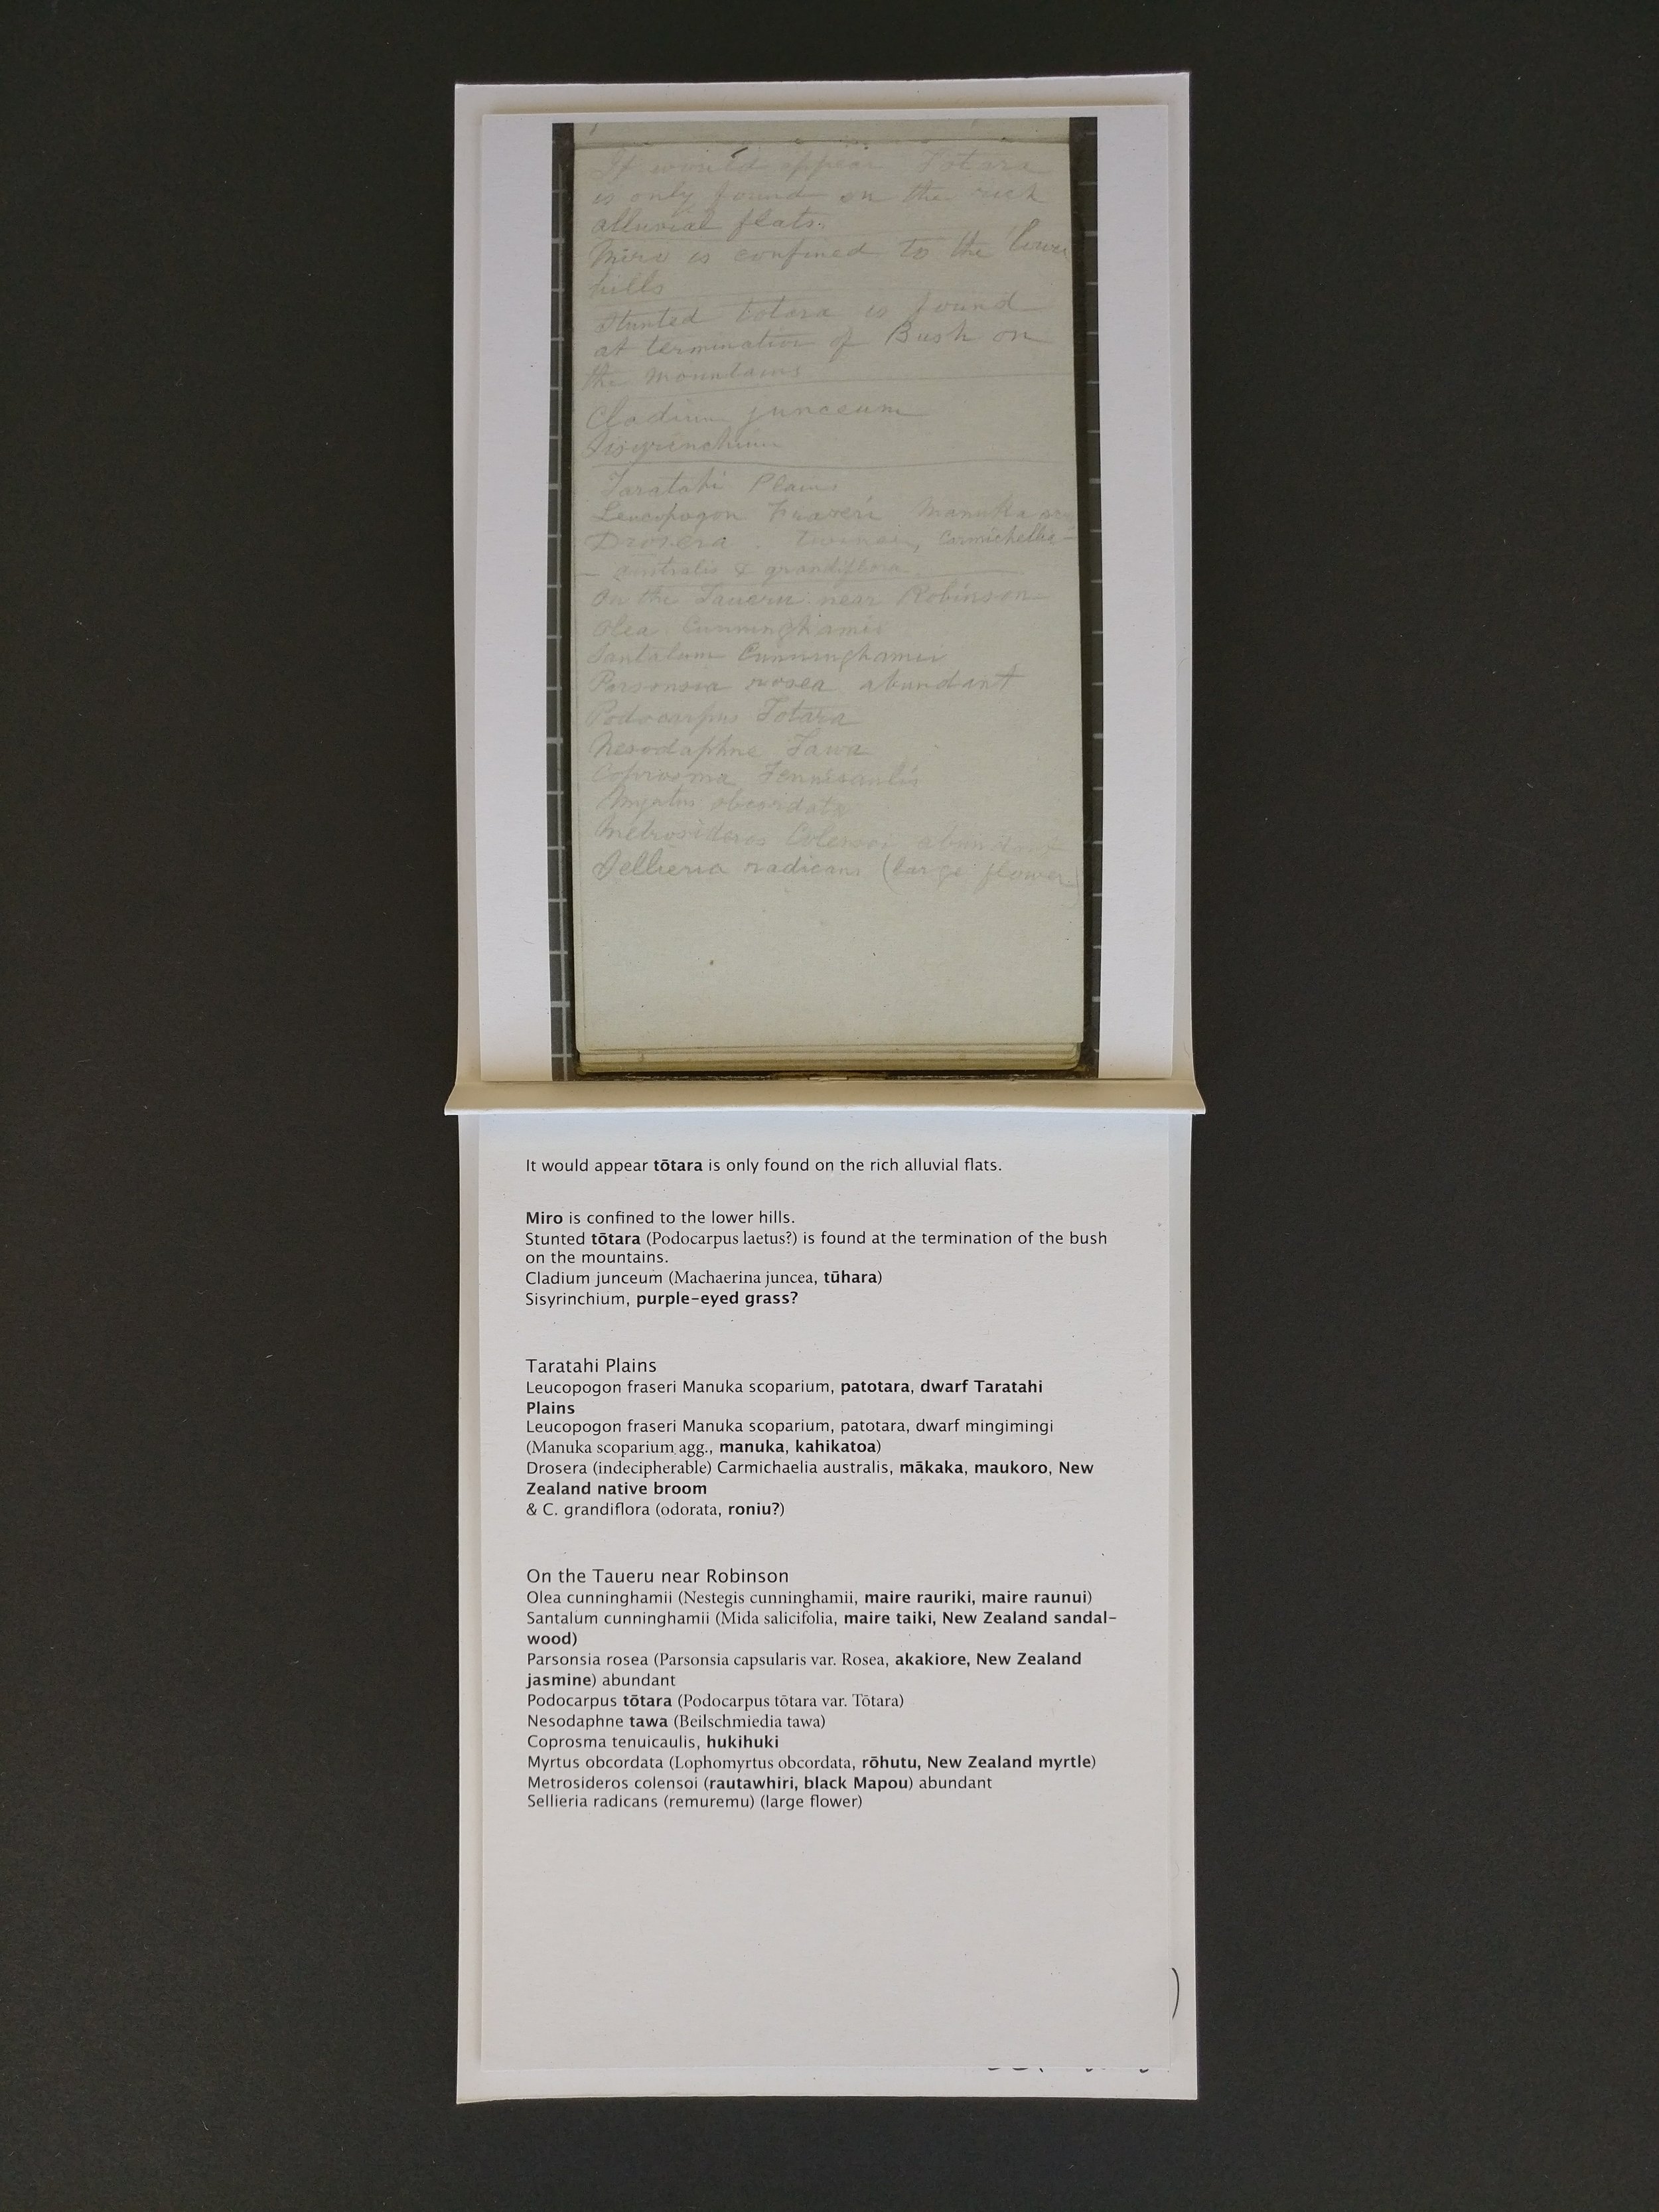 It would appear Totara
is only found on the rich
alluvial flats.
Miro is confined to the lower
hills
Stunted totara is found
at termination of Bush on
the mountains
Cladium junceum
Sisyrinchium
Taratahi Plains
Leucopogon Fraseri Manuka
Drosera Carmichellia
australis & grandiflora
On the Taueru near Robinson
Olea Cunninghamii
Santalum Cunninghamii
Parsonsia rosea abundant
Podocarpus Totara
Nesodaphne Tawa
Coprosma
Myrtus obcordata
Metrosideros Colensoi abundant
Sellieria radicans (large flower)
It would appear tōtara is only found on the rich alluvial flats.
Miro is confined to the lower hills.
Stunted tōtara (Podocarpus laetus?) is found at the termination of the bush
on the mountains.
Cladium junceum (Machaerina juncea, tūhara)
Sisyrinchium, purple-eyed grass?
Taratahi Plains
Leucopogon fraseri Manuka scoparium, patotara, dwarf Taratahi
Plains
Leucopogon fraseri Manuka scoparium, patotara, dwarf mingimingi
(Manuka scoparium agg., manuka, kahikatoa)
Drosera (indecipherable) Carmichaelia australis, mākaka, maukoro, New
Zealand native broom
& C. grandiflora (odorata, roniu?)
On the Taueru near Robinson
Olea cunninghamii (Nestegis cunninghamii, maire rauriki, maire raunui)
Santalum cunninghamii (Mida salicifolia, maire taiki, New Zealand sandal-
wood)
Parsonsia rosea (Parsonsia capsularis var. Rosea, akakiore, New Zealand
jasmine) abundant
Podocarpus tōtara (Podocarpus tōtara var. Tōtara)
Nesodaphne tawa (Beilschmiedia tawa)
Coprosma tenuicaulis, hukihuki
Myrtus obcordata (Lophomyrtus obcordata, rōhutu, New Zealand myrtle)
Metrosideros colensoi (rautawhiri, black Mapou) abundant
Sellieria radicans (remuremu) (large flower)